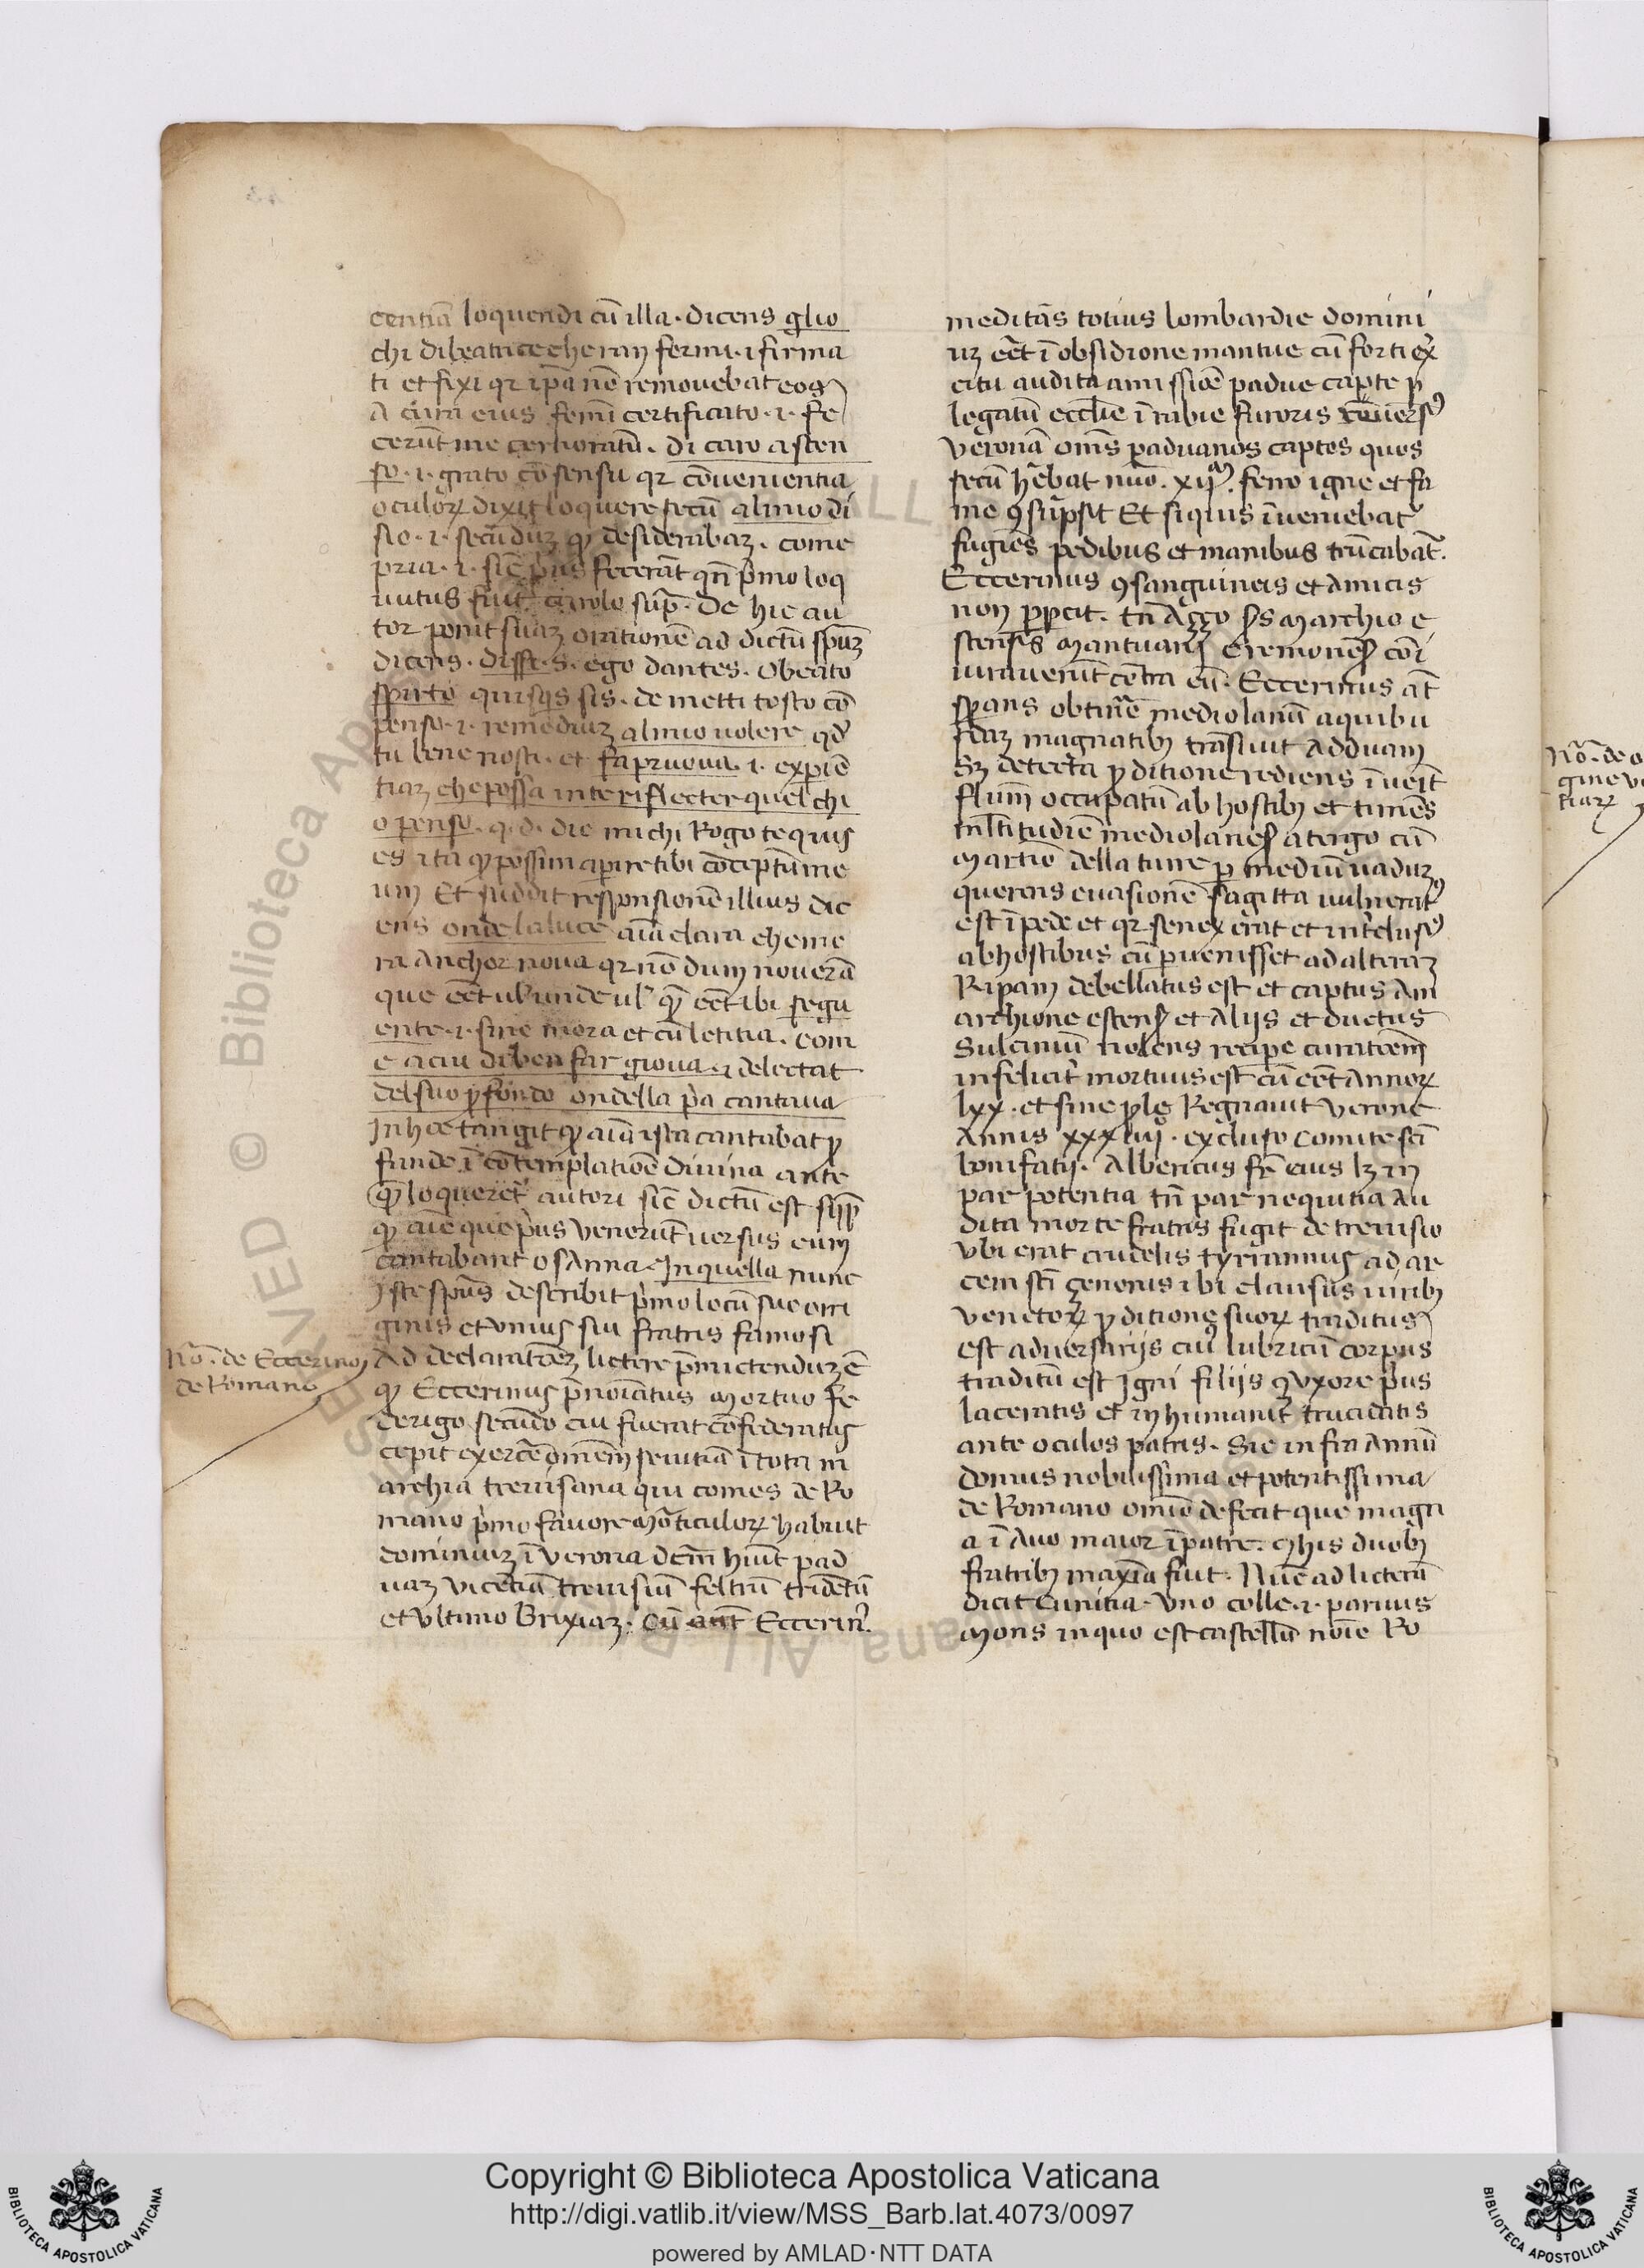 centiã loquendi cũ illa · dicens glio
chi di beatrice che ran fermi · i firma
ti et fixi qr ip̃a nõ removebat eos
A cura eius fem̃i certificato · i · fe
cerũt me certioratũ · di caro assen
so · i · grato cõsensu qr cõvenientia
oculoꝝ dixit loquere secũ al mio di
sio · i · secũduz qꝫ desiderabaz · come
pria · i · sic̃ pus fecerãt qñ pmo loq
uutus fuit carolo sup̃ · De hic au
tor ponit suaz orationẽ ad dictũ spũz
dicens · dissi · s · ego dantes · O beato
spirto quisqs sis · de metti tosto cõ
penso · i · remediuz al mio volere qđ
tu bene nosti · et fa pruova · i · expiẽ
tiaz che possa in te riflecter quel chi
o penso · q · d · dic michi Rogo te quis
es ita qꝫ possim apire tibi cõceptũ me
um Et subdit responsionẽ illius dic
ens onde la luce aĩa clara che me
ra Anchor nova qr nõ dum noverã
que eẽt ul unde ul qꝫ eẽt ibi segu
ente · i · sine mora et cũ letitia · com
e a cui di ben far giova · i · delectat
del suo pfondo ondella pa cantava
In hoc tangit qꝫ aĩa ista cantabat p
funde ĩ cõtemplatiõe divina ante
qꝫ loqueret autori sic̃ dictũ est sup̃
qꝫ aĩe que pus venerũt versus eum
cantabant osAnna · In quella nunc
Iste spũs describit pmo locũ sue ori
ginis et unius sui fratris famosi
Nõ · de Eccerino
de Romano
Ad declaratõez lictere pmictenduz ẽ
qꝫ Eccerinus pnoĩatus Mortuo fe
derigo secũdo cui fuerat cõfederatus
cepit exercẽ omẽm sevitiã ĩ tota m
archia trevisana qui comes de Ro
mano pmo favore Mõticuloꝝ habuit
dominiuz ĩ verona dem̃ hũit pad
uaz vicẽtiã trevisiũ feltrũ tridẽtũ
et ultimo Brixiaz · Cũ aut Eccerin⁹
meditãs totius lombardie domini
uz eẽt ĩ obsidione mantue cũ forti ex̃
citu audita amissiõe padue capte p
legatũ eccl̃ie ĩ rabie furoris rẽvers⁹
veronã om̃s paduanos captos quos
secũ hẽbat nũo · xij · ferro igne et fa
me ꝯsũpsit Et siquis ĩveniebat
fugiẽs pedibus et manibus trũcabat̃ ·
Eccerinus ꝯsanguineis et Amicis
non ppcit · tñ Aççо ꝑs Marchio e
stensis Mantuani cremonẽs cõi
iuraverũt cõtra eũ · Eccerinus at̃
sperans obtinẽ mediolanũ a quibu
sdaz magnatibꝫ trãsivit Adduam
Sꝫ detecta pditione rediens ĩveit
flum̃ occupatũ ab hostibꝫ et timẽs
ml̃titudiẽ mediolanẽs a tergo cũ
Martiõ della turre p mediũ vaduz
querens evasionẽ sagitta vulnerat⁹
est ĩ pede et qr senex erat et int̃clus⁹
ab hostibus cũ puenisset ad alteraz
Ripam debellatus est et captus A m
archione estens et Alijs et ductus
Sulcinũ nolens recipe curatõem
infelicit̃ mortuus est cũ eẽt Annoꝝ
lxx · et sine ple Regnavit verone
Annis xxxiiij · excluso comite sc̃i
bonifatij · Albericus fr̃ eius lꝫ in
par potentia tñ par nequitia Au
dita morte fratris fugit de trevisio
ubi erat crudelis tyrannus ad ar
cem sc̃i çenonis ibi clausus viribꝫ
venetoꝝ pditione suoꝝ traditus
est adversarijs cui⁹ lubricũ corpus
traditũ est Igni filijs ꝯ uxore pus
laceratis et inhumanit̃ trucidatis
ante oculos patris · Sic infra Annũ
domus nobilissima et potentissima
de Romano omĩo defecit que magn
a ĩ Avo maior ĩ patre · ĩ his duobꝫ
fratribꝫ maxĩa fuit · Nũc ad licterã
dicit Cunitia · Uno colle · i · parvus
Mons in quo est castellũ noĩe Ro
Nõ · de o
gine ve
tiaꝝ
Copyright © Biblioteca Apostolica Vaticana
http://digi.vatlib.it/view/MSS_Barb.lat.4073/0097
powered by AMLAD·NTT DATA
BIBLIOTECA APOSTOLICA VATICANA
BIBLIOTECA APOSTOLICA VATICANA